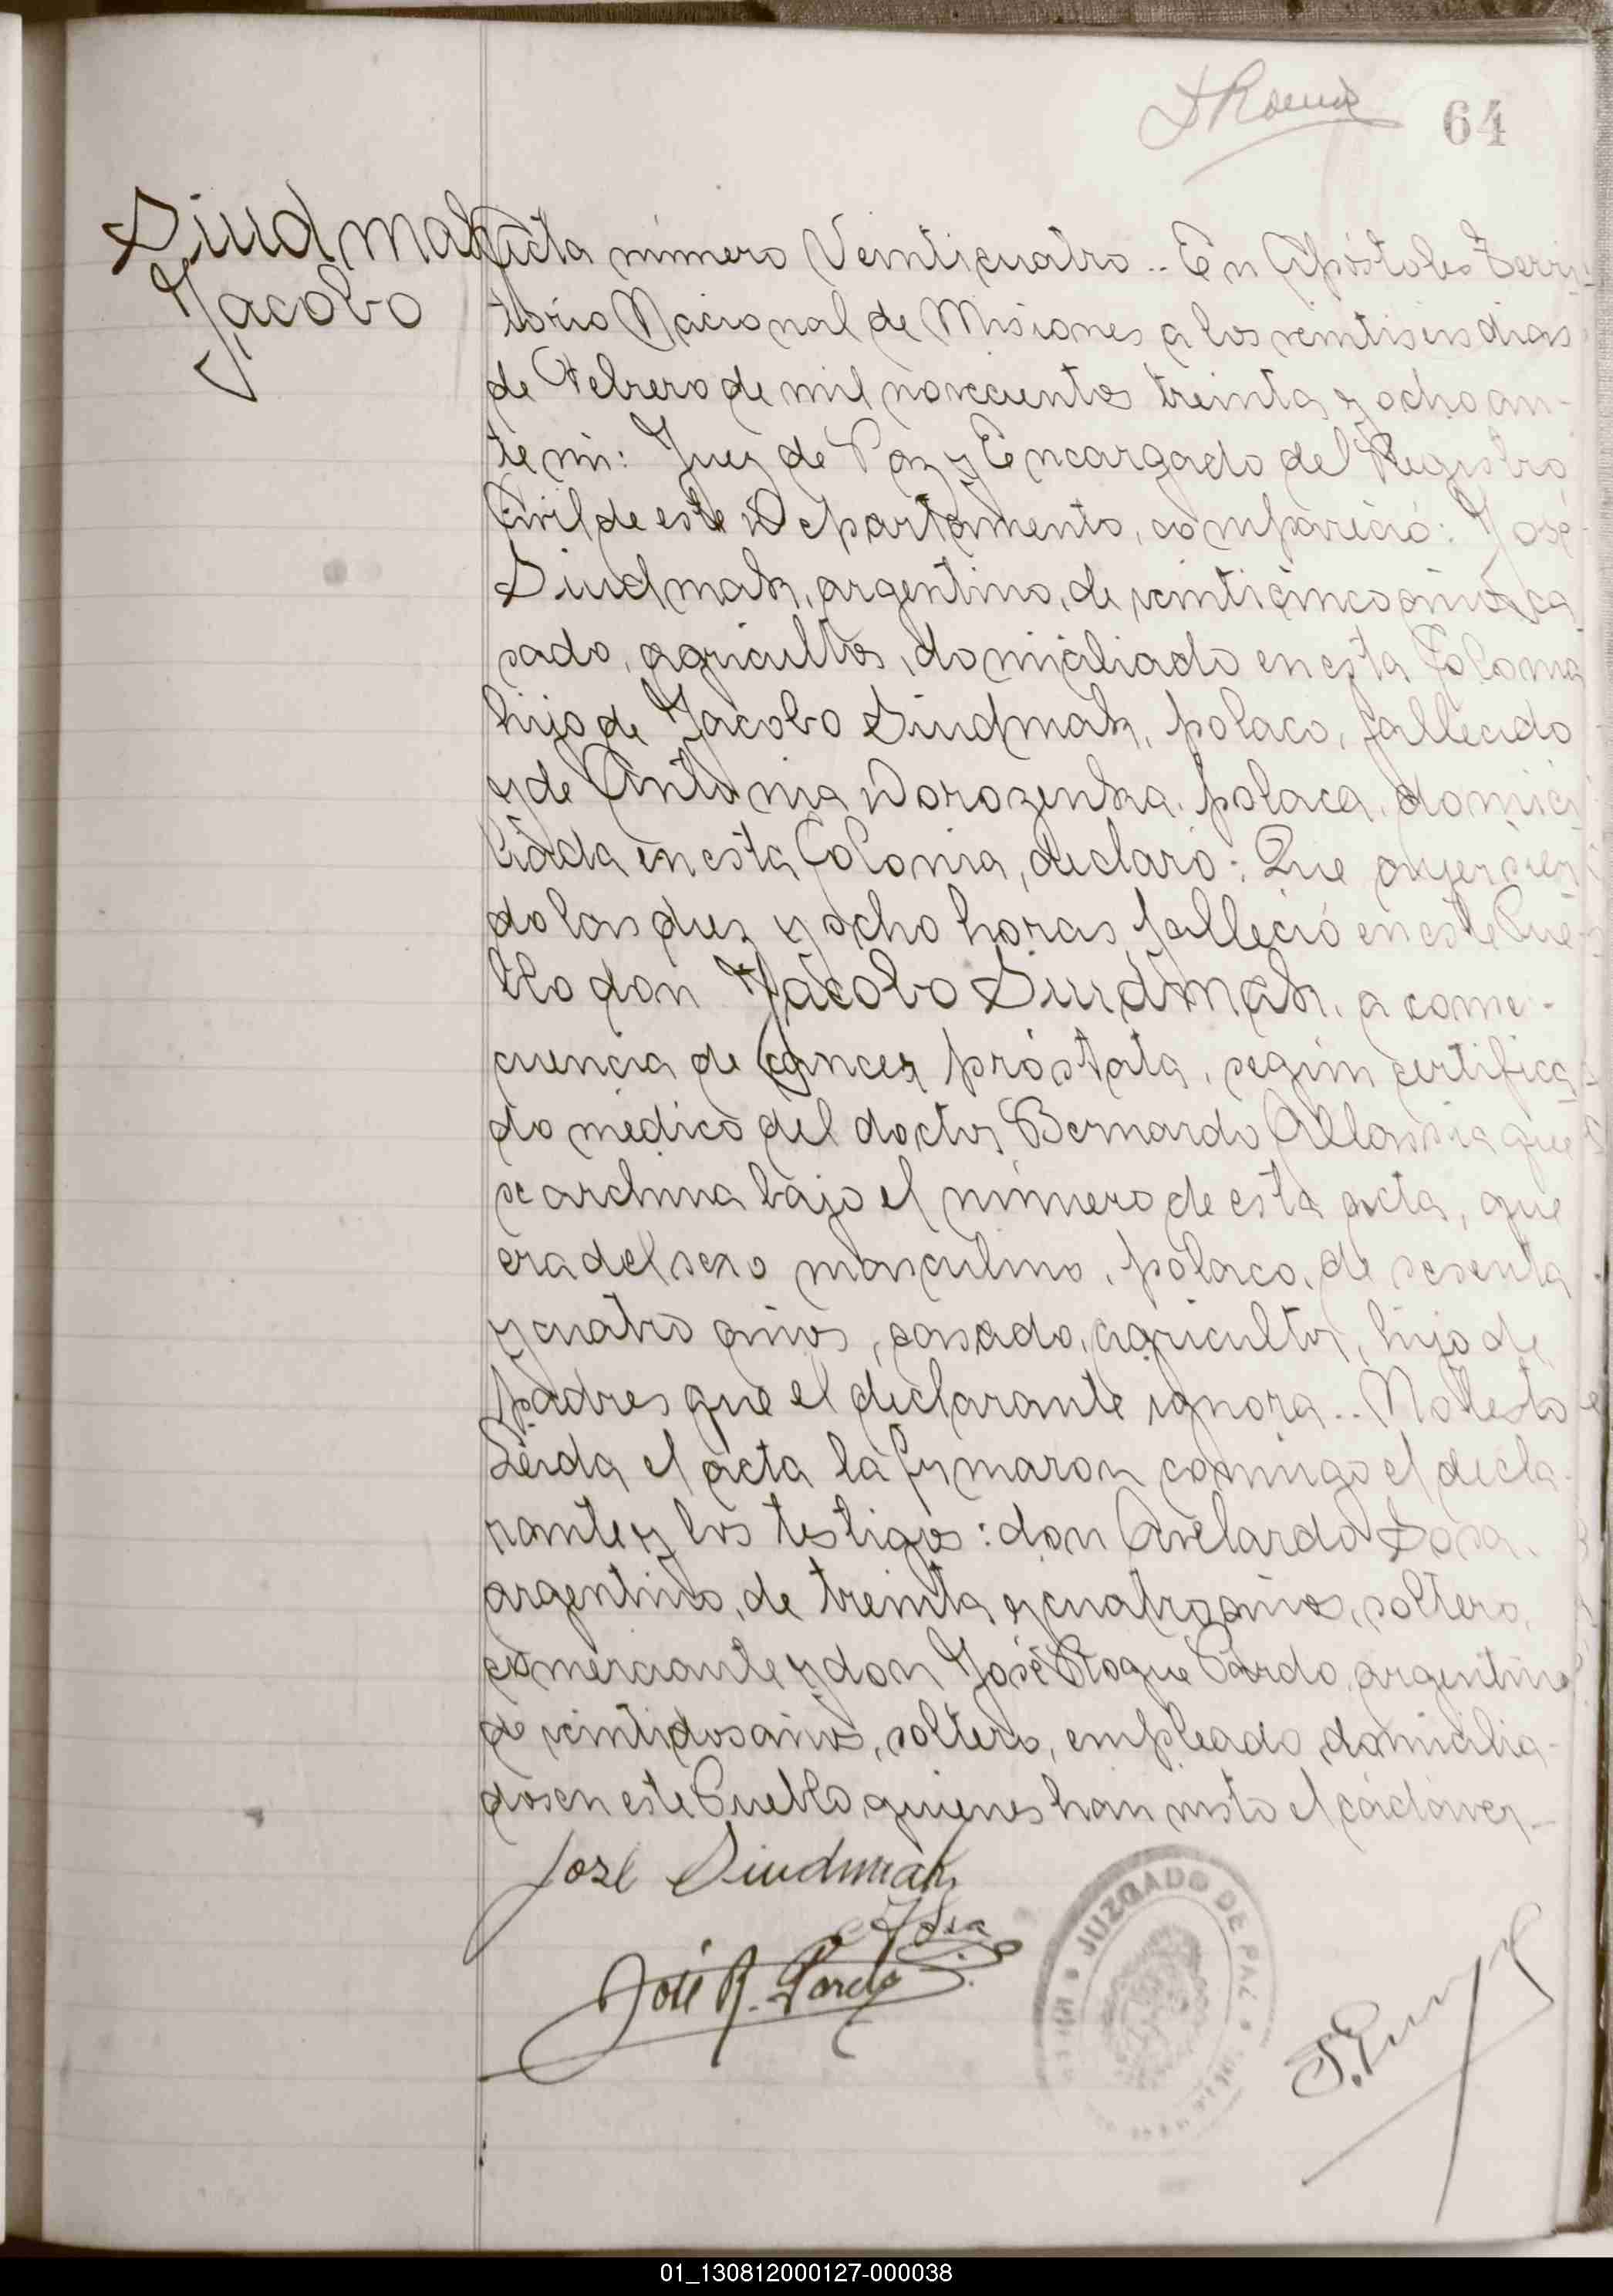 64
Siudmak
Jacobo
Acta número Veinticuatro.. En Apóstoles Terri-
tório Nacional de Misiones a los veintiseis dias
de Febrero de mil novecientos treinta y ocho an-
te mi: Juez de Paz y Encargado del Registro
Civil de este Departamento, compareció: José
Siudmak, argentino, de veinticinco años, ca
sado, agricultor, domiciliado en esta Colonia
hijo de Jacobo Siudmak, polaco, fallecido
y de Antonia Dorozenska, polaca, domici
liada en esta Colonia, declaró: Que ayer sien
do las diez y ocho horas falleció en este Pue-
blo don Jacobo Siudmak, a conse-
cuencia de cáncer próstata, según certifica
do médico del doctor Bernardo Allassia que
se archiva bajo el número de esta acta, que
era del sexo masculino, polaco, de sesenta
y cuatro años, casado, agricultor, hijo de
padres que el declarante ignora.. No testo
Leida el acta la firmaron conmigo el decla-
rante y los testigos: don Avelardo Sosa,
argentino, de treinta y cuatro años, soltero,
comerciante y don José Roque Pardo, argentino
de veintidos años, soltero, empleado, domicilia-
dos en este Pueblo quienes han visto el cadáver.-
José Siudmak
ASosa
José R. Pardo
JUZGADO DE PAZ
01_130812000127-000038